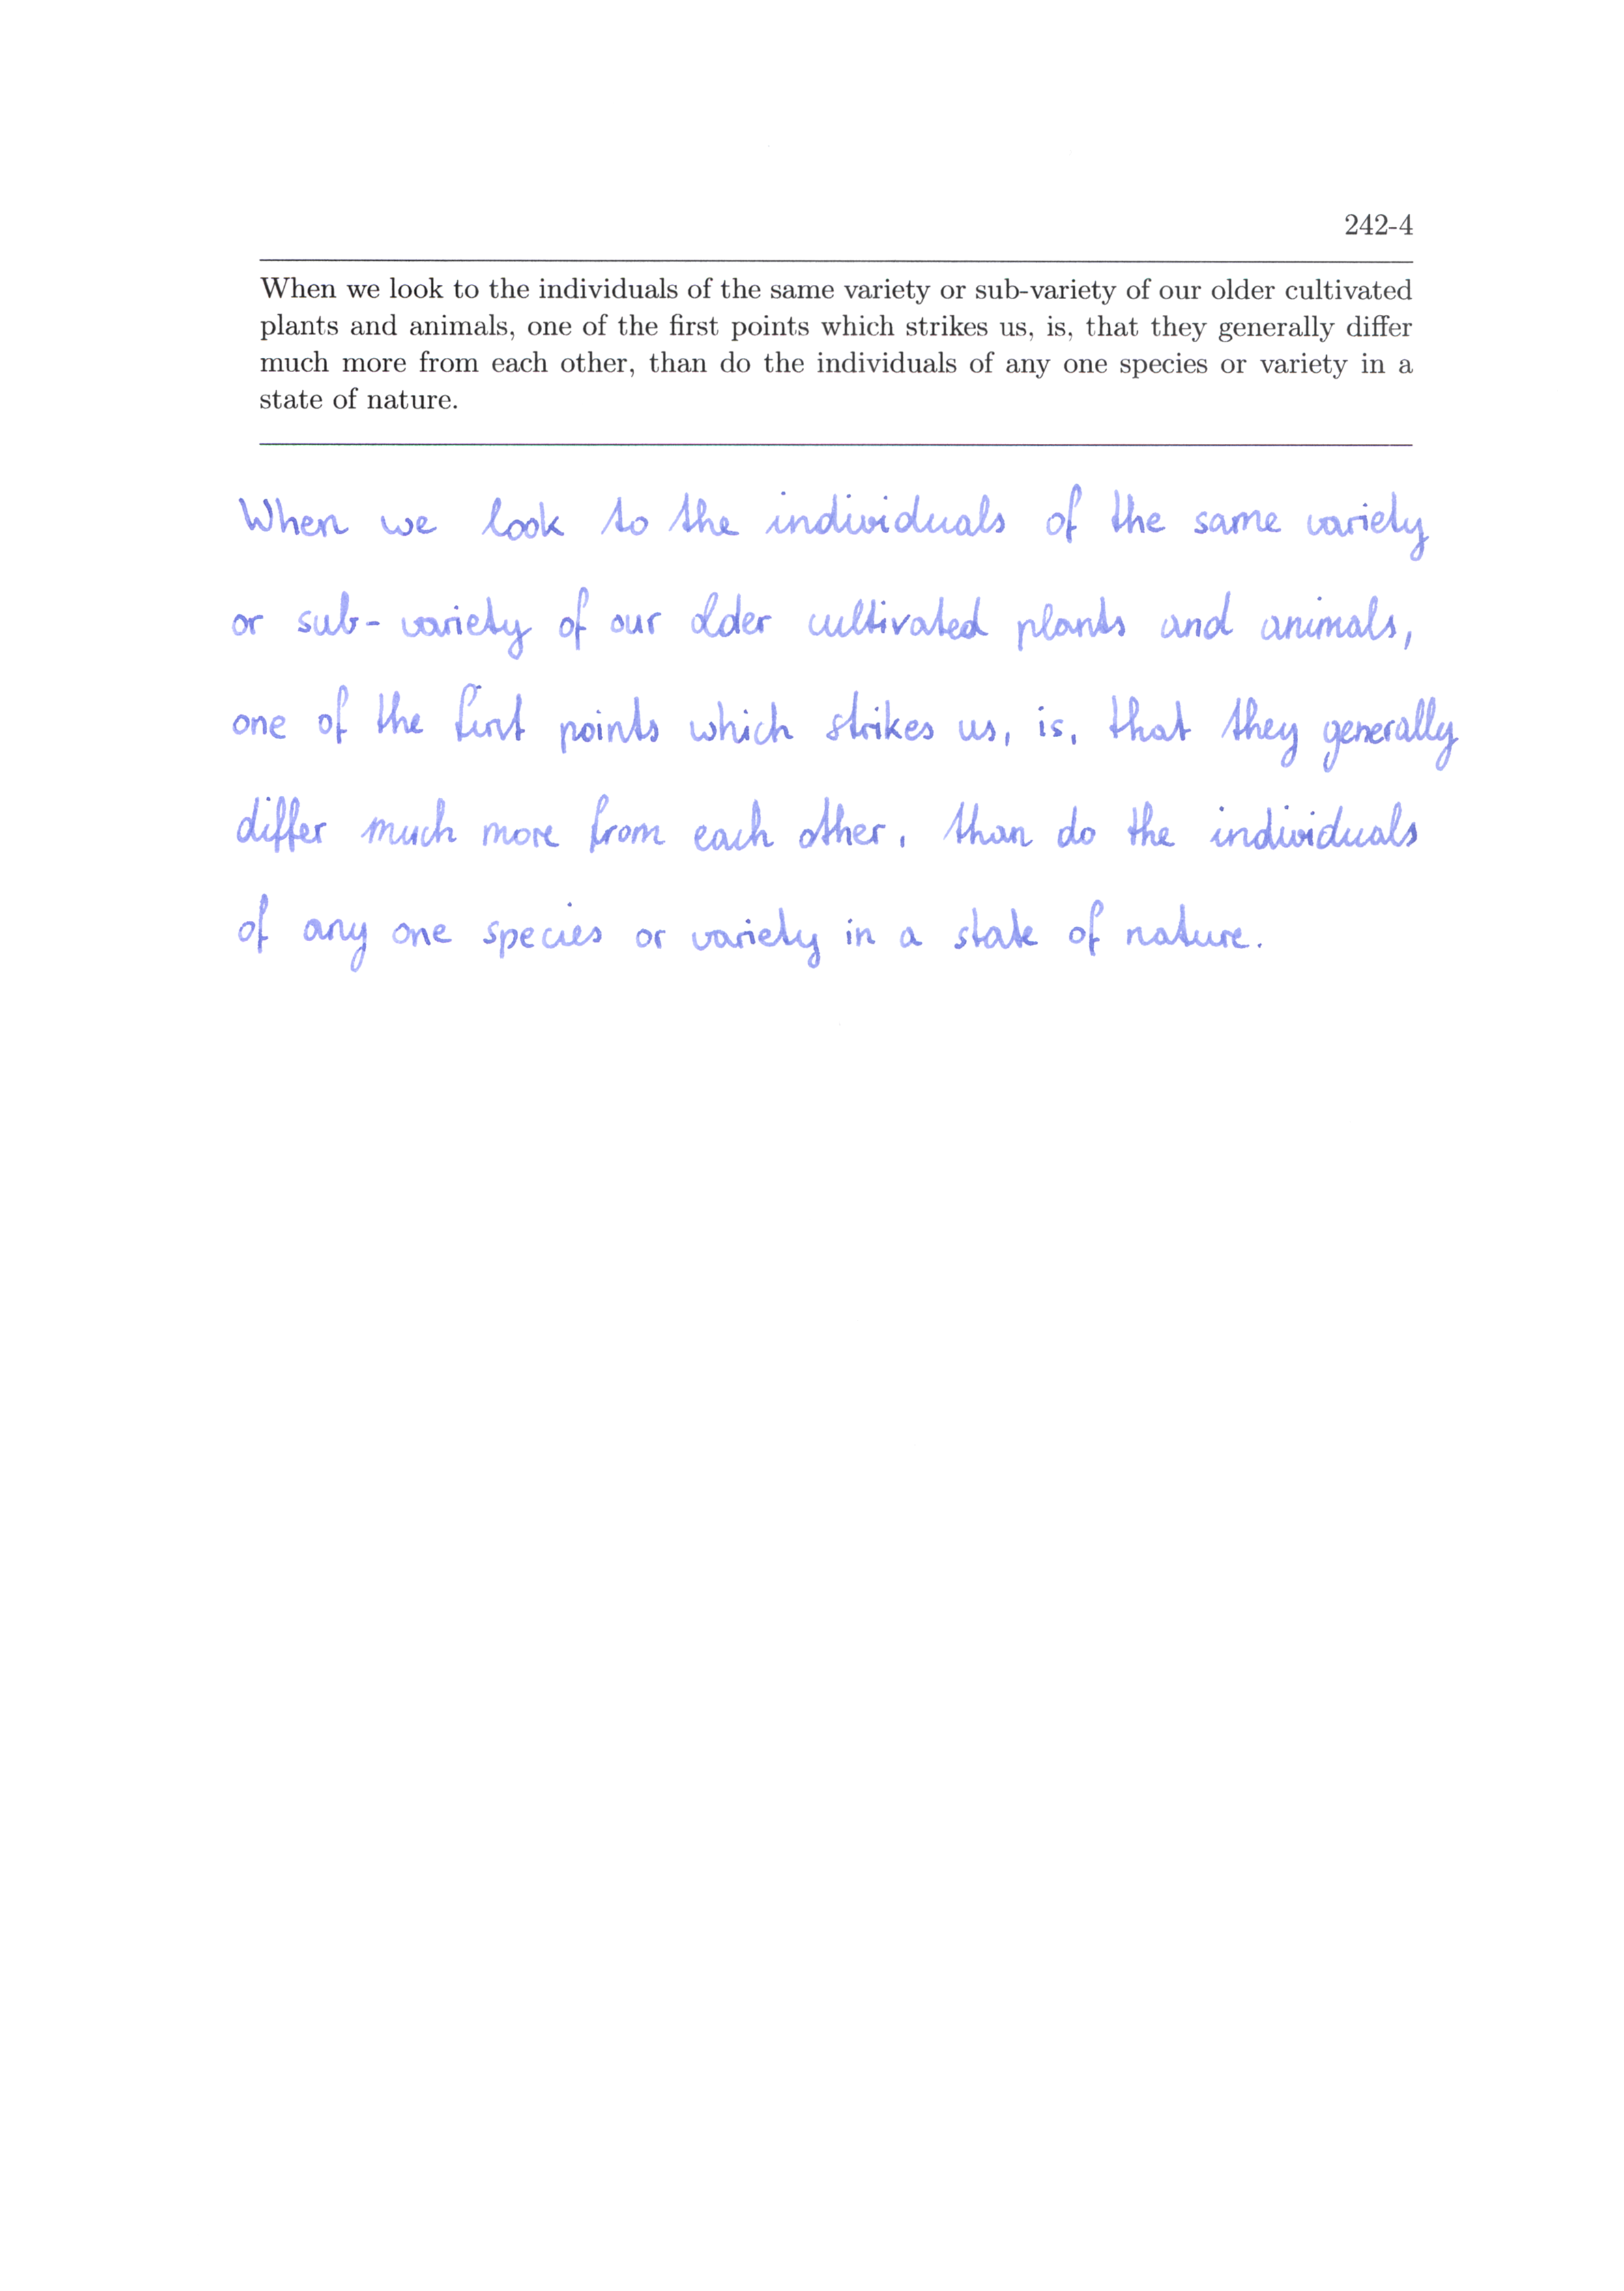 242-4
When we look to the individuals of the same variety or sub-variety of our older cultivated
plants and animals, one of the first points which strikes us, is, that they generally differ
much more from each other, than do the individuals of any one species or variety in a
state of nature.
When we look to the individuals of the same variety
or sub-variety of our older cultivated plants and animals,
one of the first points which strikes us, is, that they generally
differ much more from each other, than do the individuals
of any one species or variety in a state of nature.